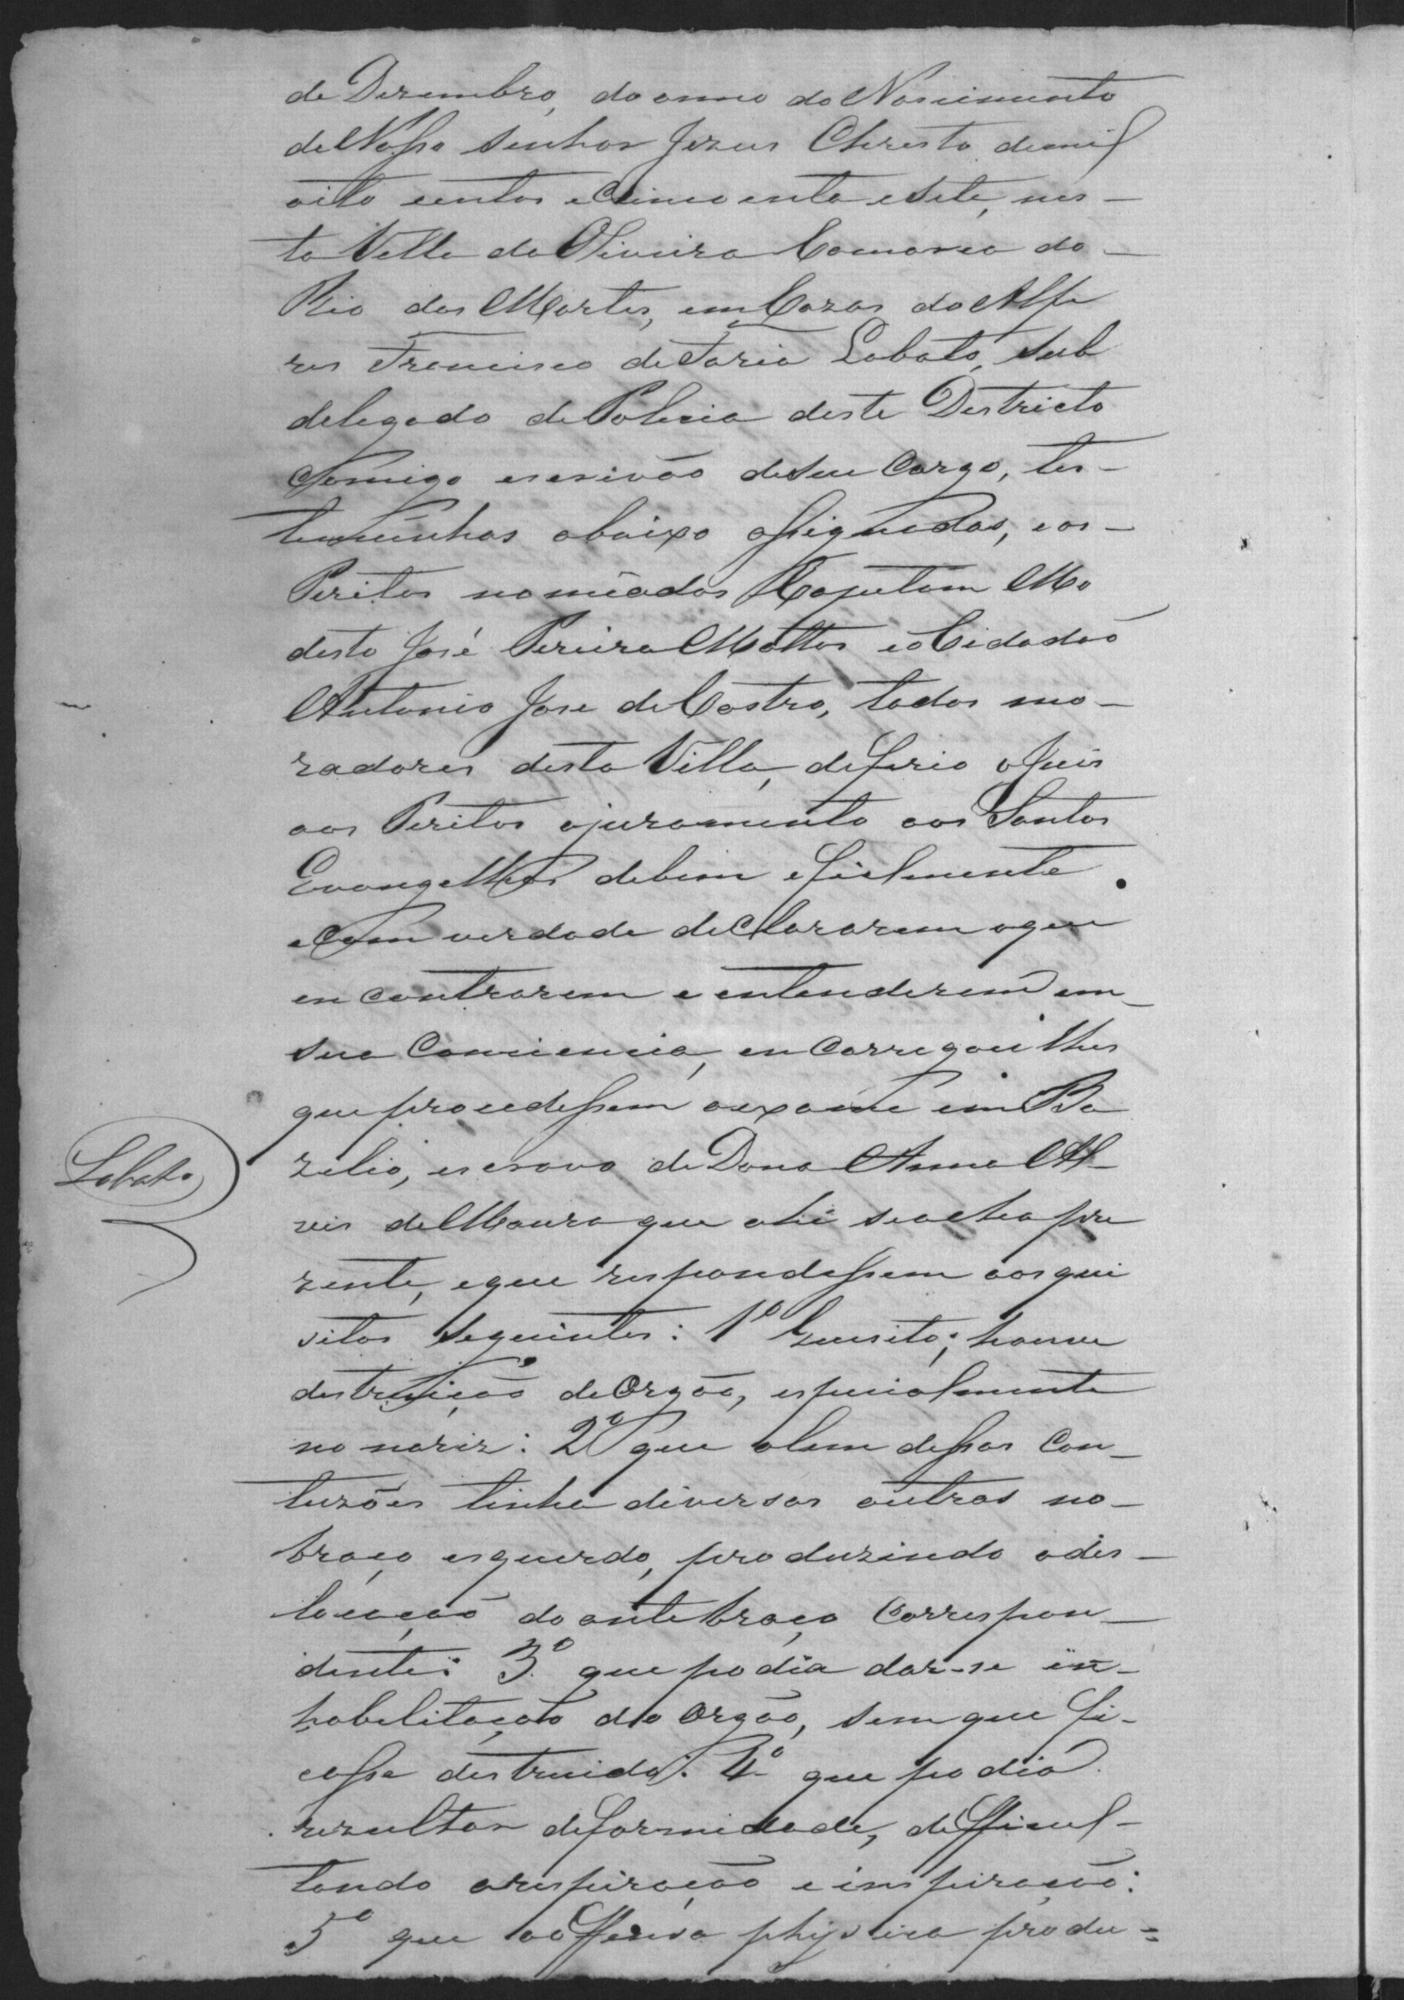 de Dezembro, do anno do Nascimento
de Nosso Senhor Jezus Christo de mil
oito centos e Cincoenta e sete, nes-
ta Villa da Oliveira Comarca do
Rio das Mortes, em Cazas do Alfe
res Francisco de Faria Lobato, Sub
delegado de Policia deste Districto
Comigo escrivão de seu Cargo, tes-
temunhas abaixo assignadas, e os
Peritos nomeados Capitam Mo
desto José Pereira Mattos e o Cidadão
Antonio Jose de Castro, todos mo-
radores desta Villa, deferio o Juis
aos Peritos o juramento aos Santos
Evangelhos de bem e fielmente
e com verdade declararem o que
en contrarem e entenderem em
sua Conciencia, en carregou lhes
que procedessem o exame em Ba
zilio, escravo de Dona Anna Al-
ves de Moura que ahi se acha pre
zente, e que respondessem aos qui
sitos seguintes: 1º Quesito; houve
destruição de Orgão, especialmente
no nariz: 2º que alem dessas Con-
tuzões tinha diversas outras no-
braço esquerdo, produzindo a des-
locação do antebraço Correspon-
dente: 3º que podia dar-se in-
habilitação do Orgão, sem que fi-
casse destruido: 4º que podia
rezultar deformidade, difficul-
tando a respiração e inspiração:
5º que a offensa physica produ=
Lobato